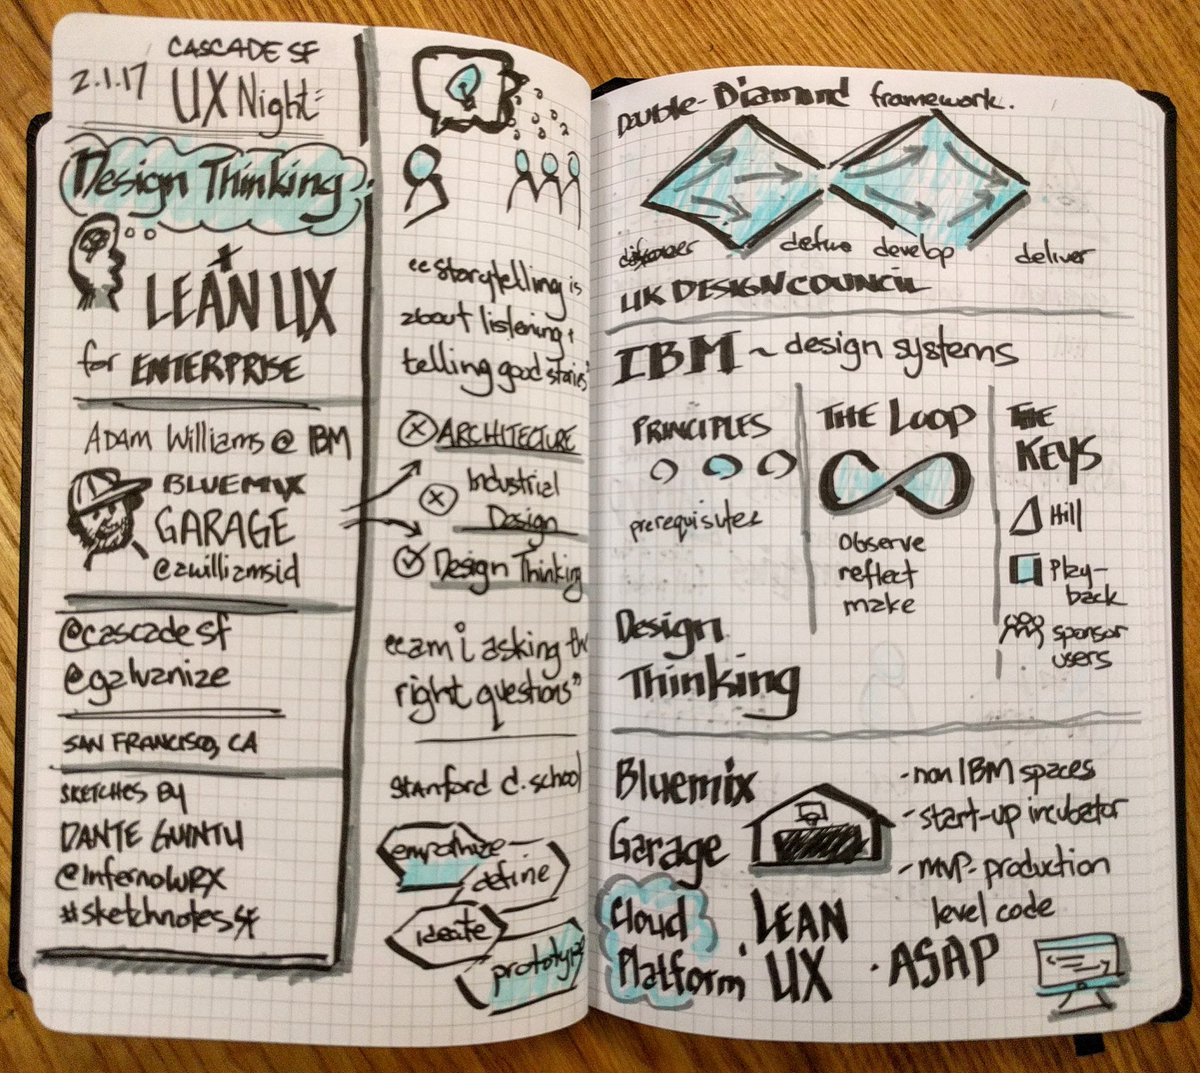 2.1.17
CASCADE SF
UX Night
Design Thinking
+
LEAN UX
for ENTERPRISE
ADAM Williams @ IBM
BLUEMIX
GARAGE
@awilliamsid
@cascadesf
@galvanize
SAN FRANCISCO, CA
SKETCHES BY
DANTE GUINTU
@InfernoWRX
#sketchnotesSF
"storytelling is
about listening +
telling good stories"
ARCHITECTURE
Industrial
Design
Design Thinking
"am i asking the
right questions"
Stanford d.school
empathize
define
ideate
prototype
Double-Diamond framework.
discover define develop deliver
UK DESIGN COUNCIL
IBM ~ design systems
PRINCIPLES
prerequisites
THE LOOP
observe
reflect
make
THE
KEYS
Hill
Play-
back
sponsor
users
Design
Thinking
Bluemix
Garage
Cloud
Platform
- non IBM spaces
- start-up incubator
- MVP-production
level code
. LEAN
UX
. ASAP